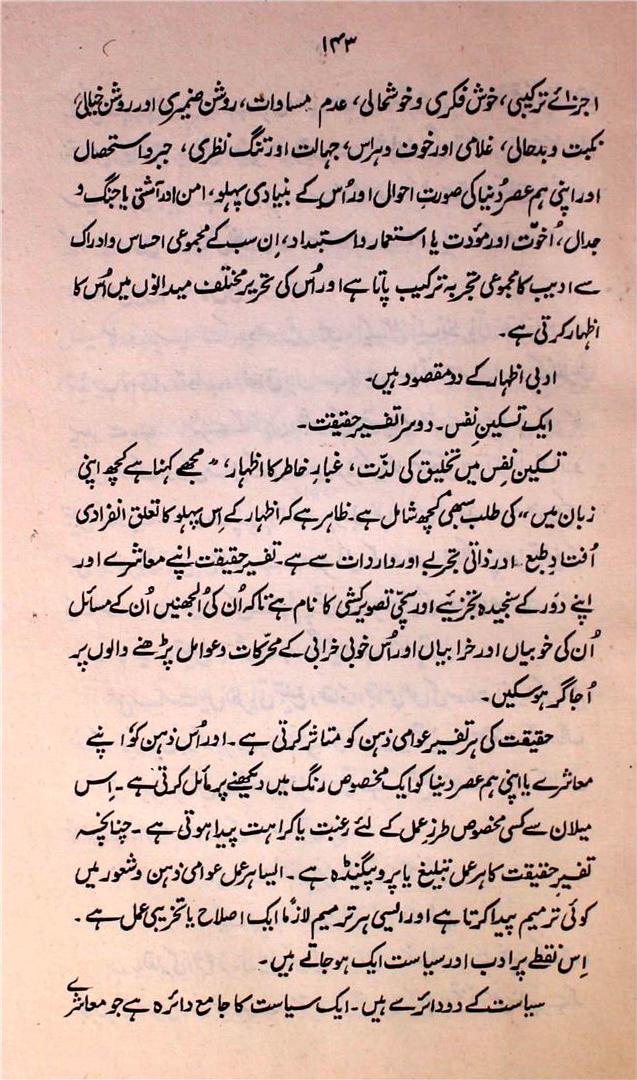 ۱۴۳
اجزائے ترکیبی، خوش فکری و خوشحالی، عدم مساوات، روشن ضمیری اور روشن خیالی،
نکبت و بدحالی، غلامی اور خوف و ہراس، جہالت اور تنگ نظری، جبر و استحصال
اور اپنی ہم عصر دُنیا کی صورتِ احوال اور اُس کے بنیادی پہلو، امن اور آشتی یا جنگ و
جدال، اُخوّت اور موَدت یا استعمار و استبداد، اِن سب کے مجموعی احساس و ادراک
سے ادیب کا مجموعی تجربہ ترکیب پاتا ہے اور اُس کی تحریر مختلف میدانوں میں اُس کا
اظہار کرتی ہے۔
ادبی اظہار کے دو مقصود ہیں۔
ایک تسکینِ نفس۔ دوسرا تفسیرِ حقیقت۔
تسکینِ نفس میں تخلیق کی لذّت، غبارِ خاطر کا اظہار، "مجھے کہنا ہے کچھ اپنی
زبان میں" کی طلب سبھی کچھ شامل ہے۔ ظاہر ہے کہ اظہار کے اِس پہلو کا تعلق انفرادی
اُفتادِ طبع اور ذاتی تجربے اور واردات سے ہے۔ تفسیرِ حقیقت اپنے معاشرے اور
اپنے دَور کے سنجیدہ تجزیے اور سچّی تصویر کشی کا نام ہے تاکہ اُن کی اُلجھنیں اُن کے مسائل
اُن کی خوبیاں اور خرابیاں اور اُس خوبی خرابی کے محرکات و عوامل پڑھنے والوں پر
اُجاگر ہو سکیں۔
حقیقت کی ہر تفسیر عوامی ذہن کو متاثر کرتی ہے۔ اور اُس ذہن کو اپنے
معاشرے یا اپنی ہم عصر دنیا کو ایک مخصوص رنگ میں دیکھنے پر مائل کرتی ہے۔ اِس
میلان سے کسی مخصوص طرزِ عمل کے لئے رغبت یا کراہت پیدا ہوتی ہے۔ چنانچہ
تفسیرِ حقیقت کا ہر عمل تبلیغ یا پروپیگنڈہ ہے۔ ایسا ہر عمل عوامی ذہن و شعور میں
کوئی ترمیم پیدا کرتا ہے اور ایسی ہر ترمیم لازماً ایک اصلاح یا تخریبی عمل ہے۔
اِس نقطے پر ادب اور سیاست ایک ہو جاتے ہیں۔
سیاست کے دو دائرے ہیں۔ ایک سیاست کا جامع دائرہ ہے جو معاشرے